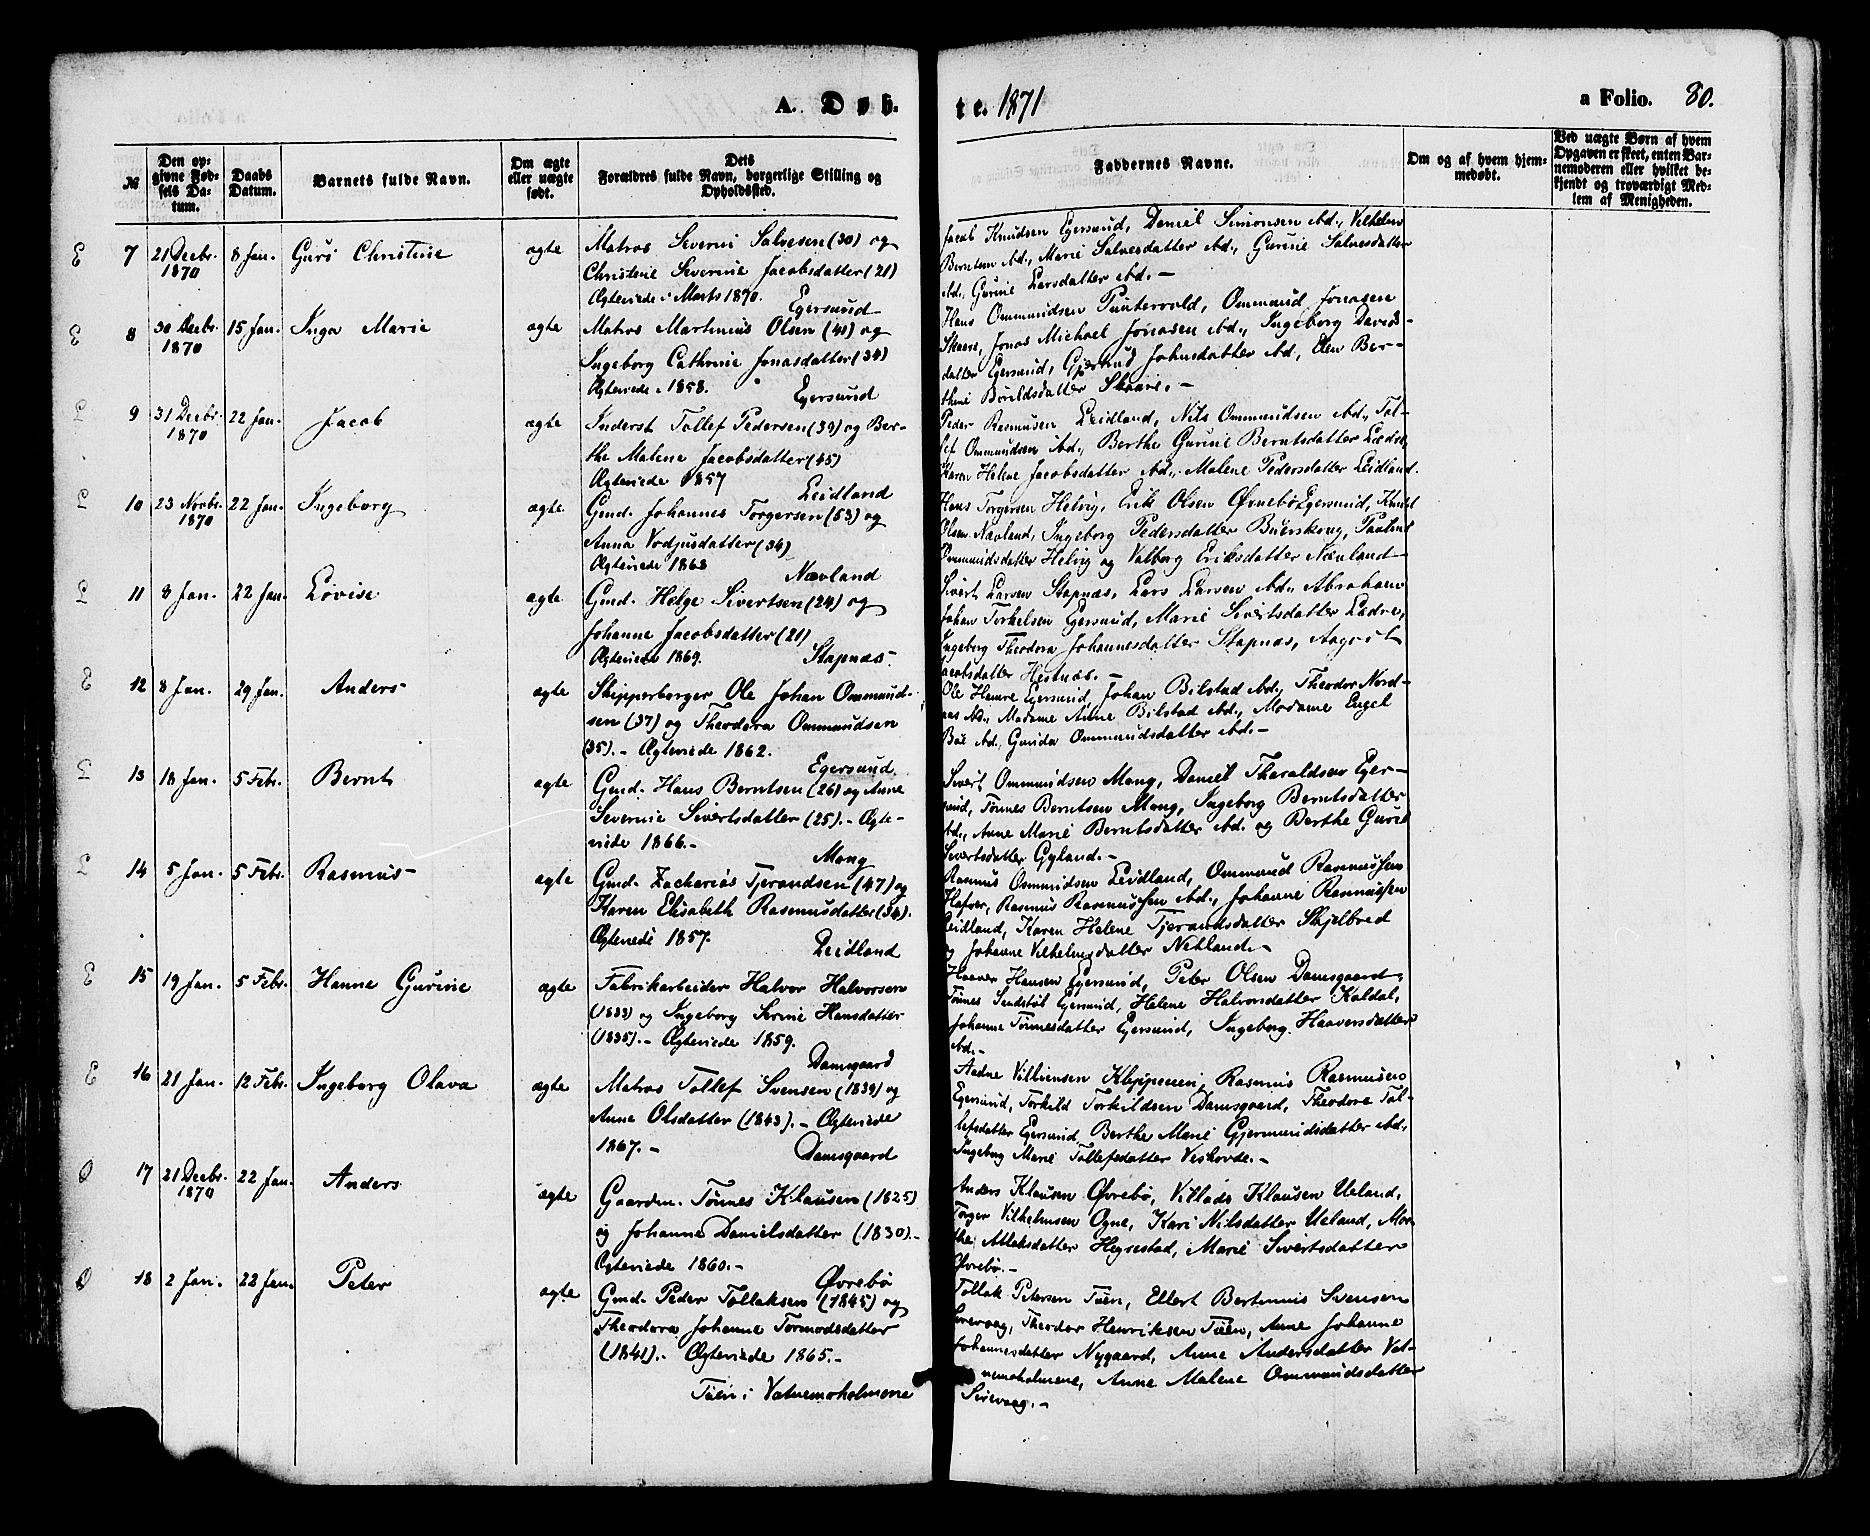 A. Døb-
te. 1871
a Folio. 80.
№
Den op-
givne Fød-
sels Da-
tum.
Daabs
Datum.
Barnets fulde Navn.
Om ægte
eller uægte
født.
Dets
Forældres fulde Navn, borgerlige Stilling og
Opholdssted.
Faddernes Navne.
Om og af hvem hjem-
medøbt.
Ved uægte Børn af hvem
Opgaven er skeet, enten Bar-
nemoderen eller hvilket be-
kjendt og troværdigt Med-
lem af Menigheden.
E 7 21 Decbr. 1870 8 Jan. Guri Christine ægte Matros Severin Salvesen (30) og
Christine Severine Jacobsdatter (21)
Ægteviede i Marts 1870. Egersund
Jacob Knudsen Egersund, Daniel Simonsen ibd., Vilhelm
Berntsen ibd., Marie Salvesdatter ibd., Gurine Salvesdatter
ibd., Gurine Larsdatter ibd.-
E 8 30 Decbr. 1870 15 Jan. Inga Marie ægte Matros Martinius Olsen (41) og
Ingeborg Cathrine Jonasdatter (34)
Ægteviede 1858. Egersund
Hans Ommundsen Puntervold, Ommund Jonasen
Skaare, Jonas Michael Jonasen ibd., Ingeborg Davids-
datter Egersund, Gjertrud Johnsdatter ibd, Elen Ber-
thine Skaare.-
9 31 Decbr. 1870 22 Jan. Jacob ægte Inderst Tollef Pedersen (39) og Ber-
the Malene Jacobsdatter (45)
Ægteviede 1857 Leidland
Peder Rasmusen Leidland, Nils Ommundsen ibd., Tol-
lef Ommundsen ibd., Berthe Gurine Berntsdatter Lædre,
Karen Helene Jacobsdatter ibd., Malene Pedersdatter Leidland.
10 23 Novbr. 1870 22 Jan. Ingeborg ægte Gmd. Johannes Torgersen (53) og
Anna Vodjusdatter (34)
Ægteviede 1863 Nævland
Hans Torgersen Helvig, Erik Olsen Øvnebø Egersund, Knud
Olsen Nævland, Ingeborg Pedersdatter Pauline
Ommundsdatter Helvig og Valborg Eriksdatter Nævland
11 8 Jan. 22 Jan. Lovise ægte Gmd. Helge Sivertsen (24) og
Johanne Jacobsdatter (21)
Ægteviede 1869. Stapnæs.
Sivert Larsen Stapnæs, Lars Larsen ibd., Abraham
Johan Torkelsen Egersund, Marie Sivertsdatter Lædre,
Ingeborg Theodora Johannesdatter Stapnæs, Aagot
Jacobsdatter Hestnæs.-
E 12 8 Jan. 29 Jan. Anders ægte Skipperborger Ole Johan Ommund-
sen (37) og Theodora Ommundsen
(35).- Ægteviede 1862. Egersund
Ole Hamre Egersund, Johan Bilstad ibd., Theodor Nord-
aas ibd., Madame Anne Bilstad ibd., Madame Engel
Bøe ibd., Gunda Ommundsdatter ibd.-
13 18 Jan. 5 Febr. Bernt ægte Gmd. Hans Berntsen (26) og Anne
Severine Sivertsdatter (25).- Ægte-
viede 1866.- Mong
Sivert Ommundsen Mong, Daniel Tharaldsen Eger-
sund, Tønnes Berntsen Mong, Ingeborg Berntsdatter
ibd., Anne Marie Berntsdatter ibd. og Berthe Gurine
Sivertsdatter Gyland.-
14 5 Jan. 5 Febr. Rasmus ægte Gmd. Zacharias Tjerandsen (47) og
Karen Elisabeth Rasmusdatter (34).
Ægteviede 1857. Leidland
Rasmus Osmundsen Leidland, Ommund Rasmussen
Hafsøe, Rasmus Rasmussen ibd., Johanne Rasmussen
Leidland, Karen Helene Tjerandsdatter Skjelbred
og Johanne Vilhelmsdatter Netland.-
E 15 19 Jan. 5 Febr. Hanne Gurine ægte Fabrikarbeider Halvor Halvorsen
(1833) og Ingeborg Serine Hansdatter
(1835).- Ægteviede 1859. Damsgaard
Haaver Hansen Egersund, Peter Olsen Damsgaard,
Tønnes Sendstøl Egersund, Helene Halvorsdatter Kaldal,
Johanne Tønnesdatter Egersund, Ingeborg Haaversdatter
ibd.-
E 16 21 Jan. 12 Febr. Ingeborg Olava ægte Matros Tollef Svensen (1839) og
Anne Olsdatter (1843).- Ægteviede
1867.- Damsgaard
Aadne Villumsen Rasmus Rasmusen
Egersund, Torkild Torkildsen Damsgaard, Theodore Tol-
lefsdatter Egersund, Berthe Marie Gjermundsdatter ibd.,
Ingeborg Marie Tollefsdatter Veshovde.-
O 17 21 Decbr. 1870 22 Jan. Anders ægte Gaardm. Tønnes Klausen (1825)
og Johanne Danielsdatter (1830).-
Ægteviede 1860.- Øvrebø
Anders Klausen Øvrebø, Villads Klausen Ueland,
Torger Vilhelmsen Ogne, Kari Nilsdatter Ueland, Mar-
the Atlaksdatter Hegrestad, Marie Sivertsdatter
Øvrebø.-
O 18 2 Jan. 22 Jan. Peter ægte Gmd. Peder Tollaksen (1845) og
Theodora Johanne Tormodsdatter
(1841).- Ægteviede 1865.-
Tuen i Vatnemoholmene
Tollak Petersen Tuen, Ellert Bertinius Svensen
Sirevaag, Theodor Henriksen Tuen, Anne Johanne
Johannesdatter Nygaard, Anne Andersdatter Vat-
nemoholmene, Anne Malene Ommundsdatter
Sirevaag.-